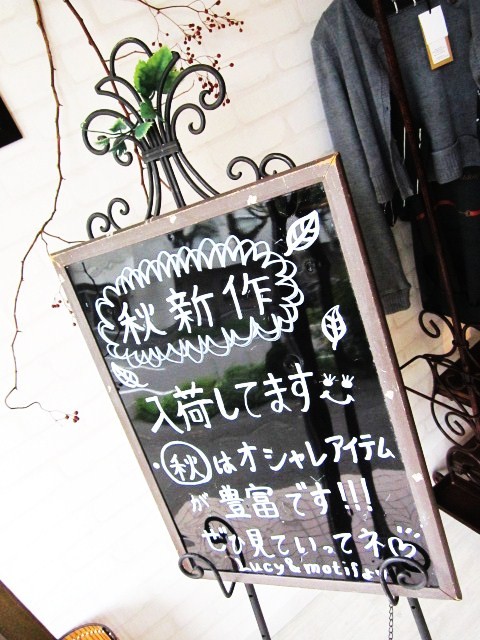 秋新作
入荷してます
・秋はオシャレアイテム
が豊富です!!!
ぜひ見ていってネ
Lucy & motifより